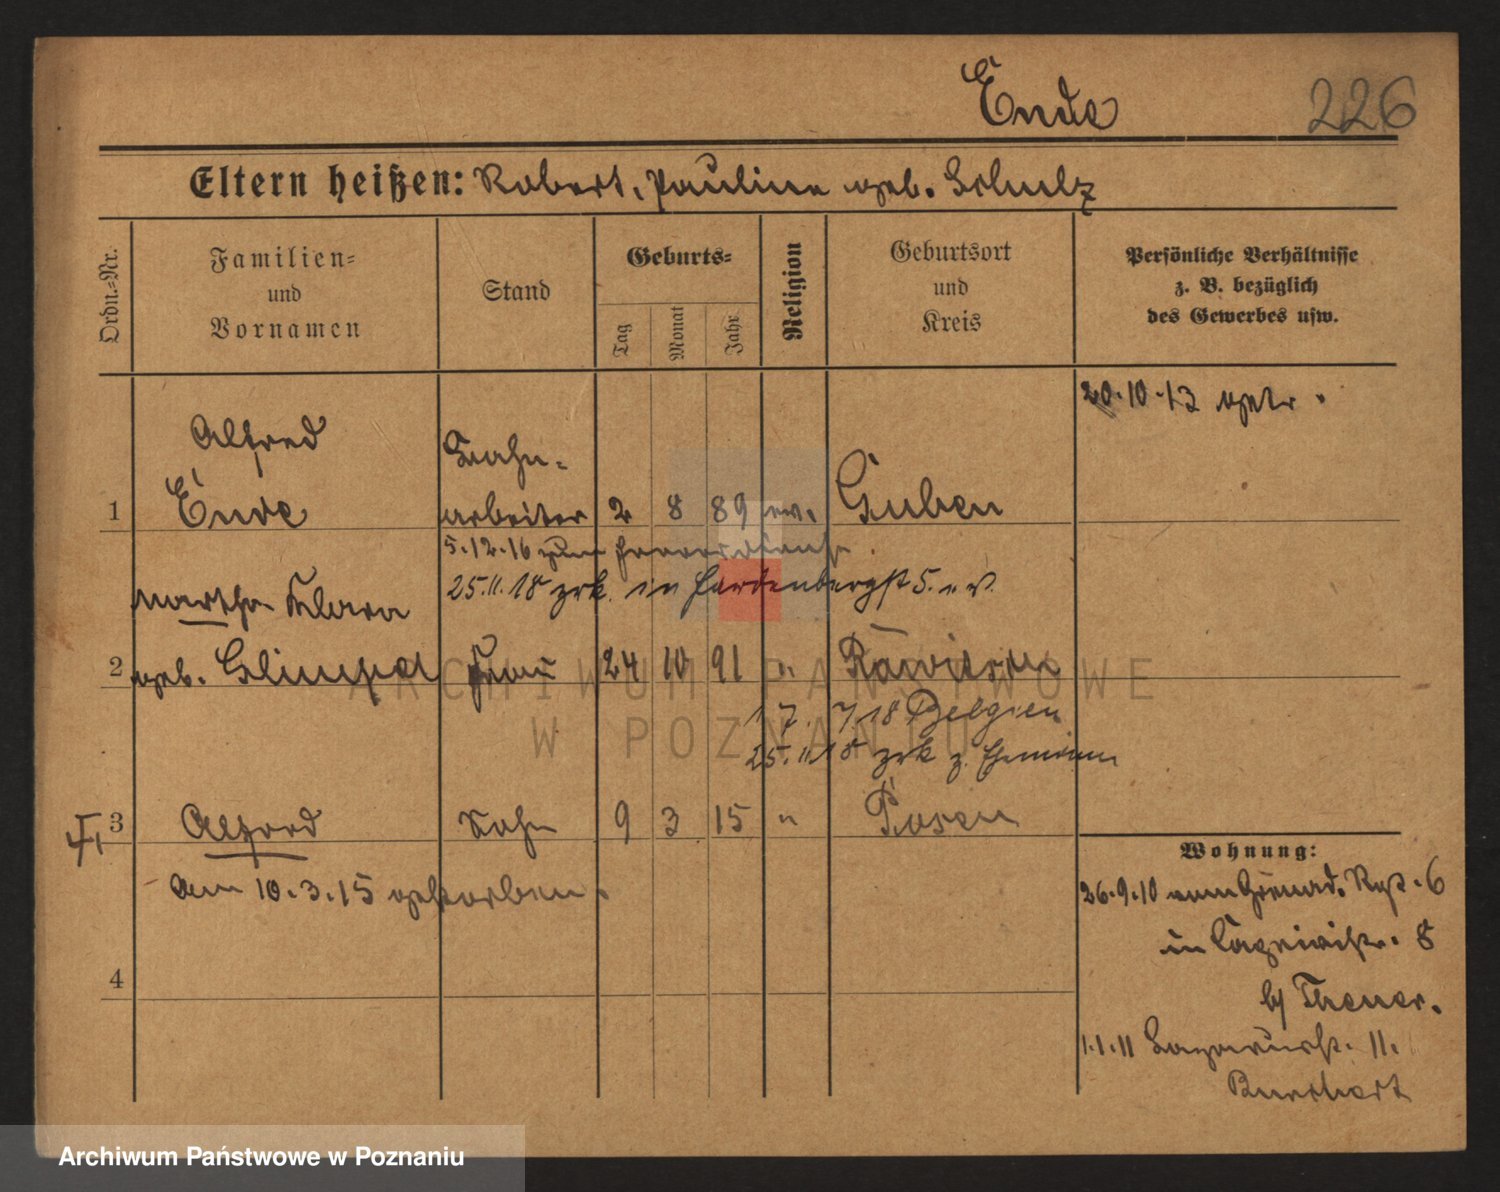 Ende 226
Eltern heißen: Robert, Pauline geb. Schulz
Ordn.=Nr.
Familien=
und
Vornamen
Stand
Geburts=
Tag
Monat
Jahr
Religion
Geburtsort
und
Kreis
Persönliche Verhältnisse
z. B. bezüglich
des Gewerbes usw.
20.10.13 getr.
Alfred
Ende
1
Bahn-
arbeiter
2 8 89 ev. Guben
5.12.16 zum Heeresdienst
25.11.18 zrk. in Hardenbergst 5.
Martha Klara
2 geb. Frau 24 10 91 " Rawitsch
17. 7 18 Belgien
25.11.18 zrk z.
3 Alfred Sohn 9 3 15 " Posen
am 10.3.15 gestorben.
4
Wohnung:
26.9.10 vom Grenad. Rgt. 6
in 8
bj Thener.
1.1.11 11.
Burchert
ARCHIWUM PAŃSTWOWE
W POZNANIU
Archiwum Państwowe w Poznaniu